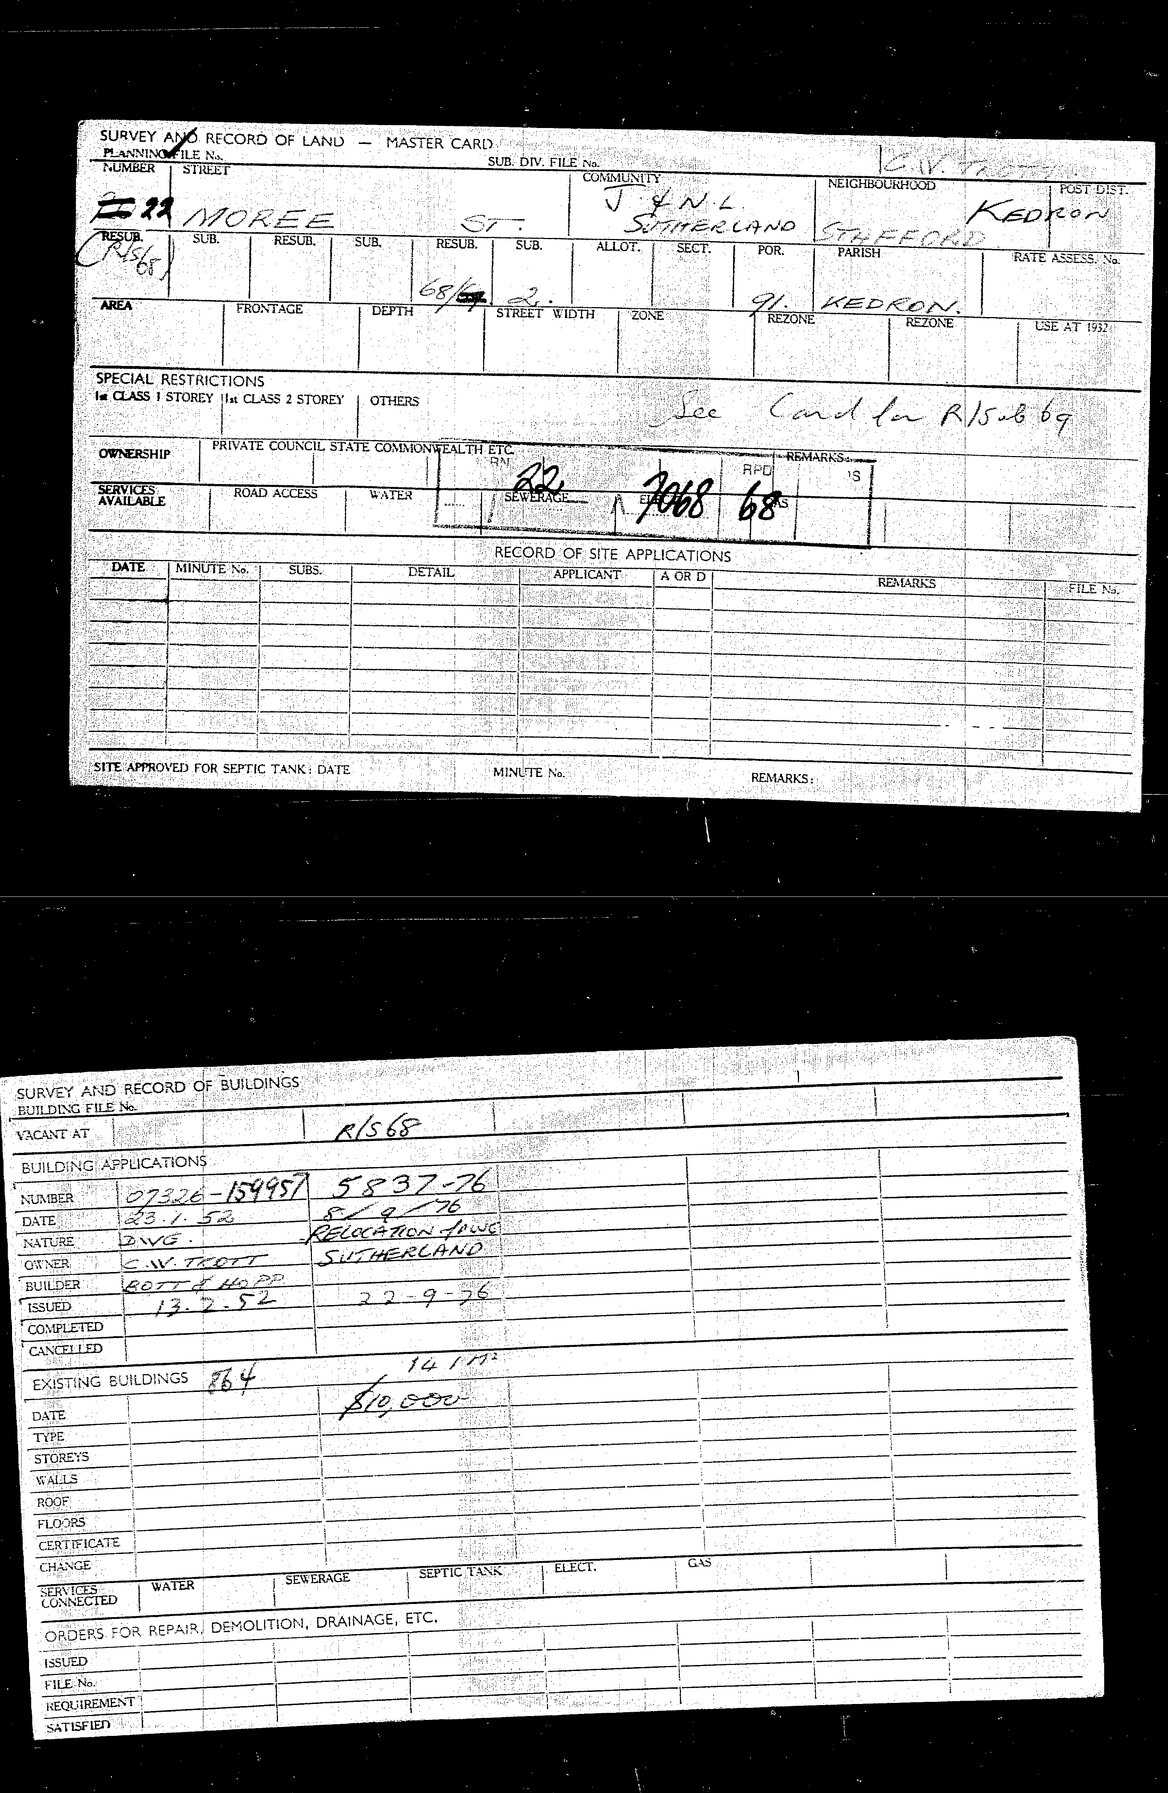 SURVEY AND RECORD OF LAND — MASTER CARD
PLANNING FILE No. SUB. DIV. FILE No. C.W. TROTT
NUMBER STREET COMMUNITY NEIGHBOURHOOD POST DIST.
22 MOREE ST. J & N.L. SUTHERLAND STAFFORD KEDRON
RESUB. SUB. RESUB. SUB. RESUB. SUB. ALLOT. SECT. POR. PARISH RATE ASSESS. No.
(R/S 68) 68/ 2. 91. KEDRON.
AREA FRONTAGE DEPTH STREET WIDTH ZONE REZONE REZONE USE AT 1932
SPECIAL RESTRICTIONS
1st CLASS 1 STOREY 1st CLASS 2 STOREY OTHERS
See Card for R/Sub 69
OWNERSHIP PRIVATE COUNCIL STATE COMMONWEALTH ETC. REMARKS:
RN RPD 'S
22 7068 68
SERVICES AVAILABLE ROAD ACCESS WATER SEWERAGE
RECORD OF SITE APPLICATIONS
DATE MINUTE No. SUBS. DETAIL APPLICANT A OR D REMARKS FILE No.
SITE APPROVED FOR SEPTIC TANK: DATE MINUTE No. REMARKS:
SURVEY AND RECORD OF BUILDINGS
BUILDING FILE No.
VACANT AT R/S 68
BUILDING APPLICATIONS
NUMBER 07326-159957 5837-76
DATE 23.1.52 8/9/76
NATURE DWG. RELOCATION of DWG
OWNER C.W. TROTT SUTHERLAND
BUILDER BOTT & HOPP
ISSUED 13.2.52 22-9-76
COMPLETED
CANCELLED
EXISTING BUILDINGS 864 141 m²
DATE $10,000
TYPE
STOREYS
WALLS
ROOF
FLOORS
CERTIFICATE
CHANGE
SERVICES CONNECTED WATER SEWERAGE SEPTIC TANK ELECT. GAS
ORDERS FOR REPAIR, DEMOLITION, DRAINAGE, ETC.
ISSUED
FILE No.
REQUIREMENT
SATISFIED